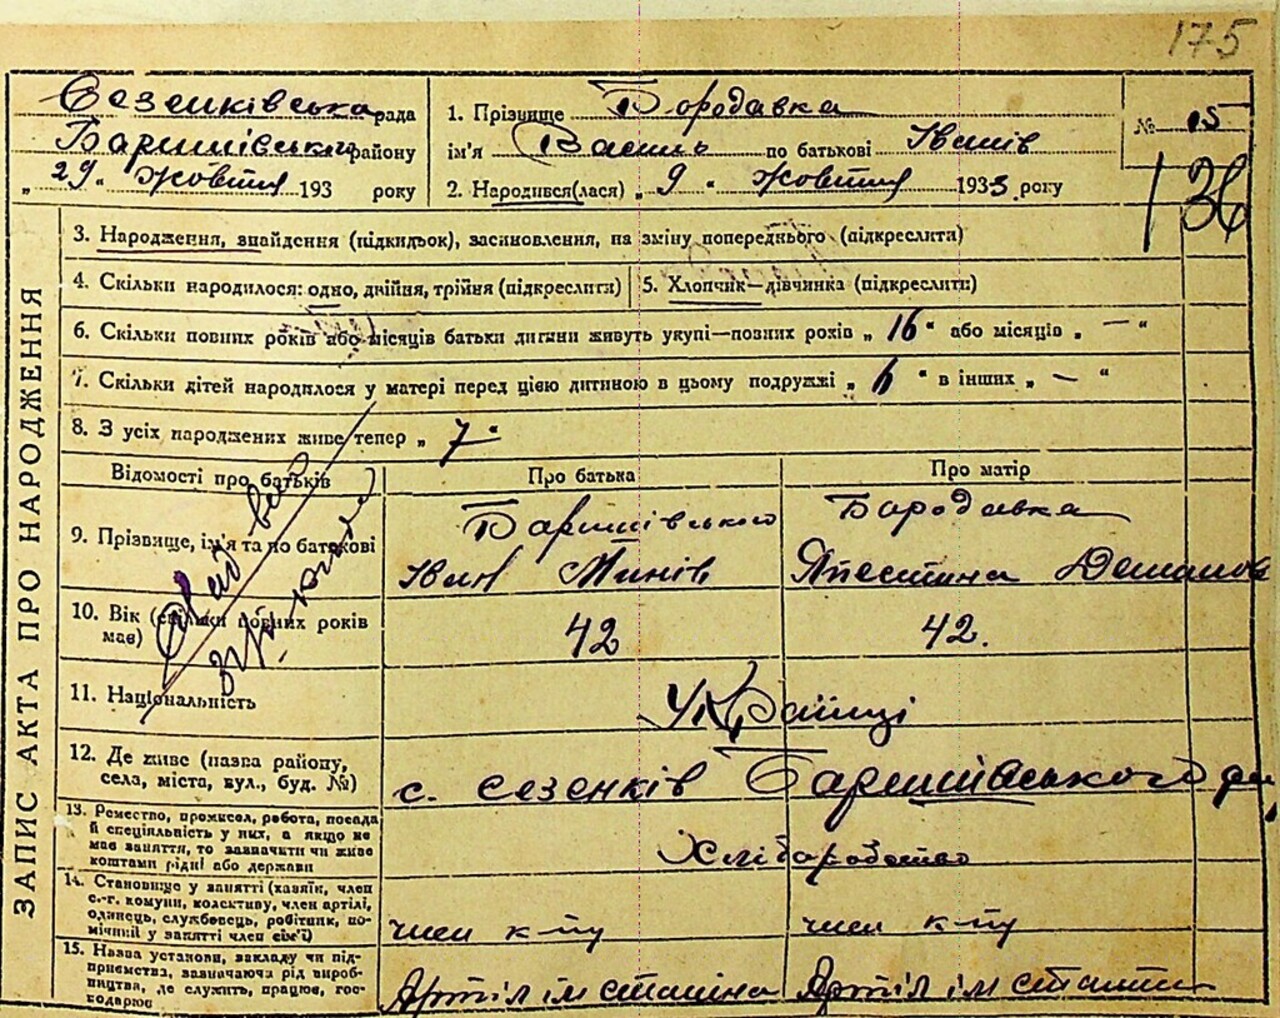 175
Сезенківська рада
Баришівського району
„ 29 " жовтня 193 року
1. Прізвище Бородавка
ім'я Василь по батькові Іванів
2. Народився(лася) „ 9 " жовтня 1933 року
№ 15
136
ЗАПИС АКТА ПРО НАРОДЖЕННЯ
3. Народження, знайдення (підкидьок), засиновлення, на зміну попереднього (підкреслити)
4. Скільки народилося: одно, двійня, трійня (підкреслити)
5. Хлопчик—дівчинка (підкреслити)
6. Скільки повних років або місяців батьки дитини живуть укупі—повних років „ 16 " або місяців „ — "
7. Скільки дітей народилося у матері перед цією дитиною в цьому подружжі „ 6 " в інших „ — "
8. З усіх народжених живе тепер „ 7 "
Відомості про батьків
Про батька
Про матір
9. Прізвище, ім'я та по батькові
Баришівського
Іван Минів
Бородавка
10. Вік (скільки повних років
має)
42
42.
11. Національність
Українці
12. Де живе (назва району,
села, міста, вул., буд. №)
с. Сезенків Баришівського р-ну
13. Ремество, промисел, робота, посада
й спеціяльність у них, а якщо не
має заняття, то зазначити чи живе
коштами рідні або держави
Хліборобство
14. Становище у занятті (хазяїк, член
с.-г. комуни, колективу, член артілі,
одинець, службовець, робітник, по-
мічний у занятті член сім'ї)
член к-пу
член к-пу
15. Назва установи, закладу чи під-
приємства, зазначаючи рід вироб-
ництва, де служить, працює, гос-
подарює
Артіл ім Сталіна
Артіл ім Сталіна